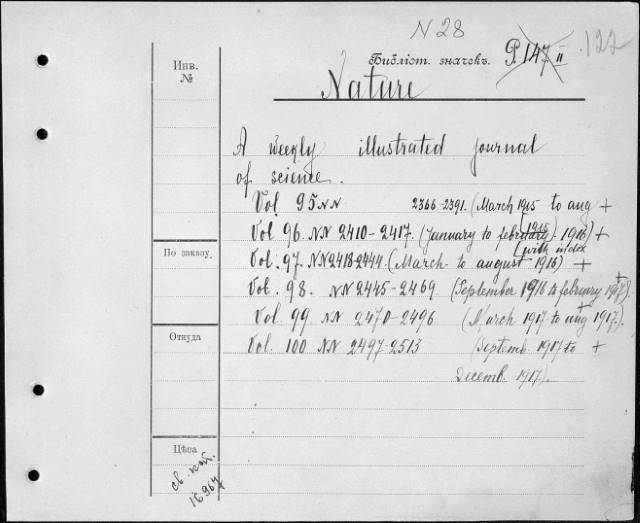 N 28
Библіот. значекъ. P. 147 II .122
Инв.
№
Nature
A weekly illustrated journal
of science.
Vol. 95 NN 2366-2391. (March 1915 to aug +
1915
Vol. 96. NN 2410-2417. (January to february 1916) +
(with index
Vol. 97. NN 2418-2444. (March to august 1916) +
По заказу
Vol. 98. NN 2445-2469 (September 1916 to february 1917). +
Vol. 99 NN 2470-2496 (March 1917 to aug 1917.) +
Откуда
Vol. 100 NN 2497-2513 (Septemb. 1917 to +
Decemb. 1917).
Цѣна
св. кат.
16967